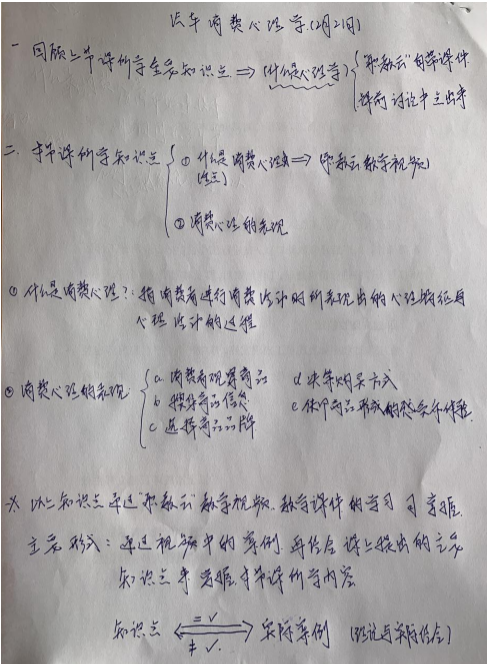 汽车消费心理学(2月21日)
一 回顾上节课所学主要知识点 ⇒ (什么是心理学) { "职教云"自带课件
课前讨论中点出来
二. 本节课所学知识点 { ① 什么是消费心理 ⇒ (职教云教学视频)
(重点)
② 消费心理的表现
① 什么是消费心理?: 指消费者进行消费活动时所表现出的心理特征与
心理活动的过程
② 消费心理的表现: { a 消费者观察商品 d 决策购买方式
b 搜集商品信息 e 使用商品形成的感受和体验.
c 选择商品品牌
※ 以上知识点通过"职教云"教学视频、教学课件的学习可掌握.
主要形式: 通过视频中的案例 再结合课上提出的主要
知识点来掌握本节课所学内容
知识点 = ✓ ≠ ✓. 实际案例 (理论与实际结合)